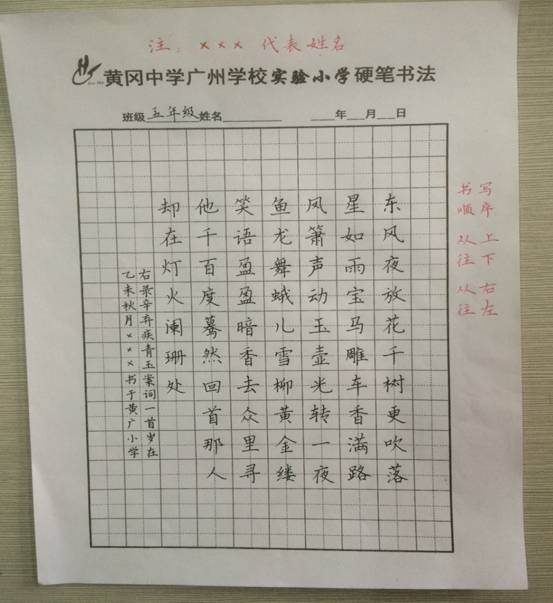 注：××× 代表姓名
黄冈中学广州学校实验小学硬笔书法
班级五年级姓名 年 月 日
东风夜放花千树更吹落
星如雨宝马雕车香满路
风箫声动玉壶光转一夜
鱼龙舞蛾儿雪柳黄金缕
笑语盈盈暗香去众里寻
他千百度蓦然回首那人
却在灯火阑珊处
右录辛弃疾青玉案词一首岁在
乙未秋月×××书于黄广小学
书写
顺序
从上
往下
从右
往左